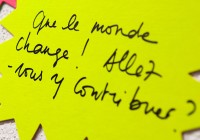 Que le monde
change ! Allez
-vous y contribuer ?